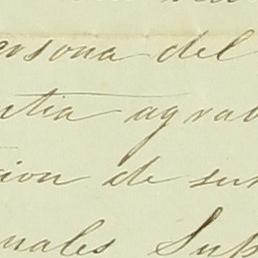 ersona del
ntia agrab
ion de su
nales Sup